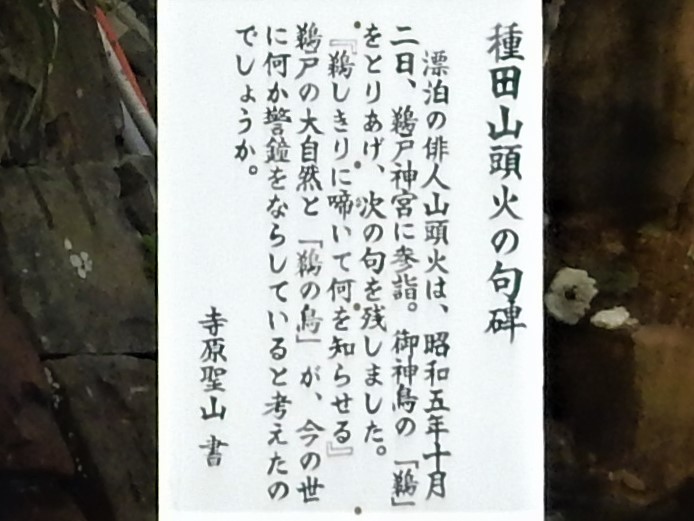 種田山頭火の句碑
漂泊の俳人山頭火は、昭和五年十月
二日、鵜戸神宮に参詣。御神鳥の「鵜」
をとりあげ、次の句を残しました。
『鵜しきりに啼いて何を知らせる』
鵜戸の大自然と「鵜の鳥」が、今の世
に何か警鐘をならしていると考えたの
でしょうか。
寺原聖山 書